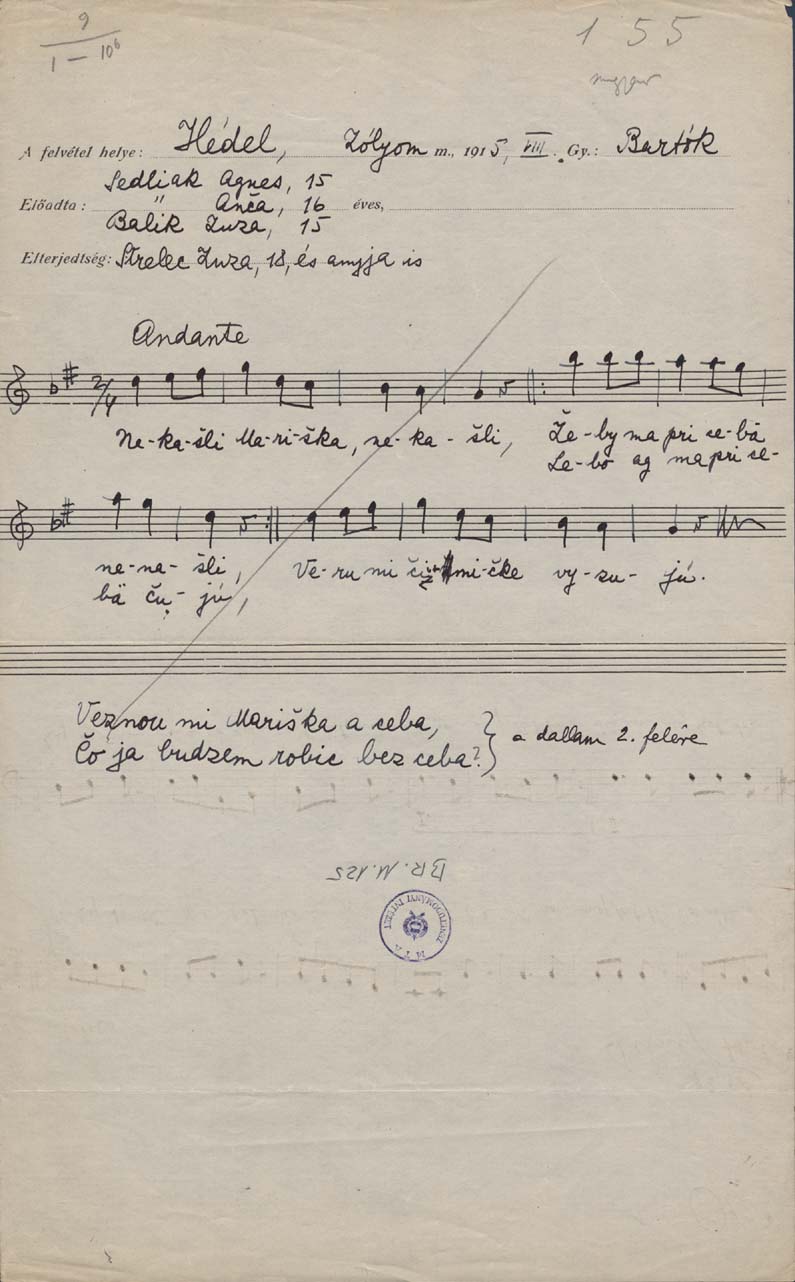 9
1 – 10⁶
155
magyar
A felvétel helye: Hédel, Zólyom m., 1915, VIII. Gy.: Bartók
Sedliak Agnes, 15
Előadta: " Anča, 16 éves,
Balik Zuza, 15
Elterjedtség: Strelec Zuza, 18, és anyja is
Andante
2/4
Ne-ka-šli Ma-ri-ška, ne-ka-šli, Že-by ma pri se-bä
Le-bo ag ma pri se-
ne-na-šli, Ve-ru mi či-mi-čke vy-zu-jú.
bä ču-jú,
Veznou mi Mariška a ceba,
a dallam 2. felére
Čo ja budzem robic bez ceba?
BR. M. 125
M T A
NÉPZENETUDOMÁNYI INTÉZET